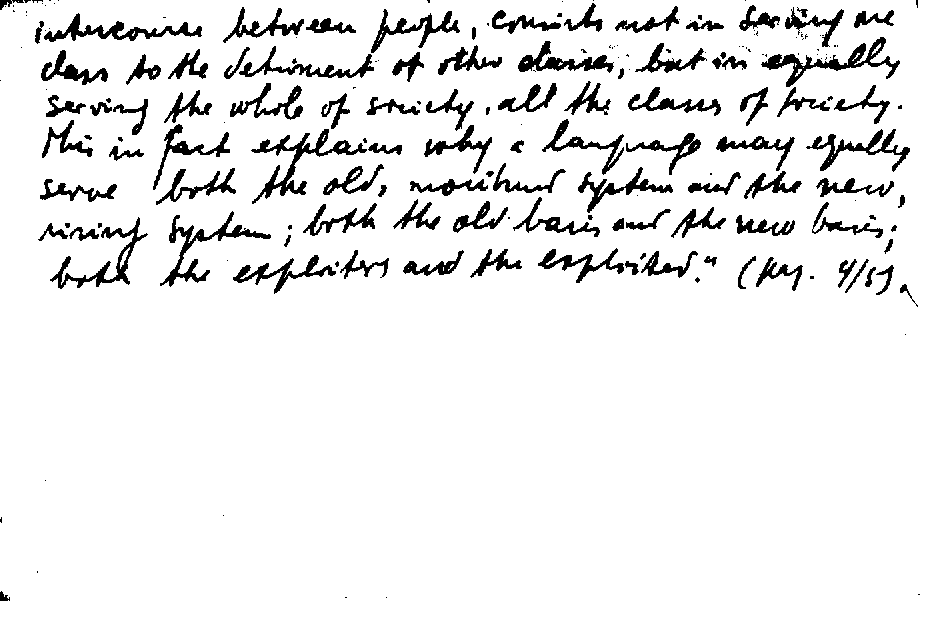 intercourse between people, consists not in serving one
class to the detriment of other classes, but in equally
serving the whole of society, all the classes of society.
This in fact explains why a language may equally
serve both the old, moribund system and the new,
rising system; both the old basis and the new basis;
both the exploiters and the exploited." (pag. 4/5).